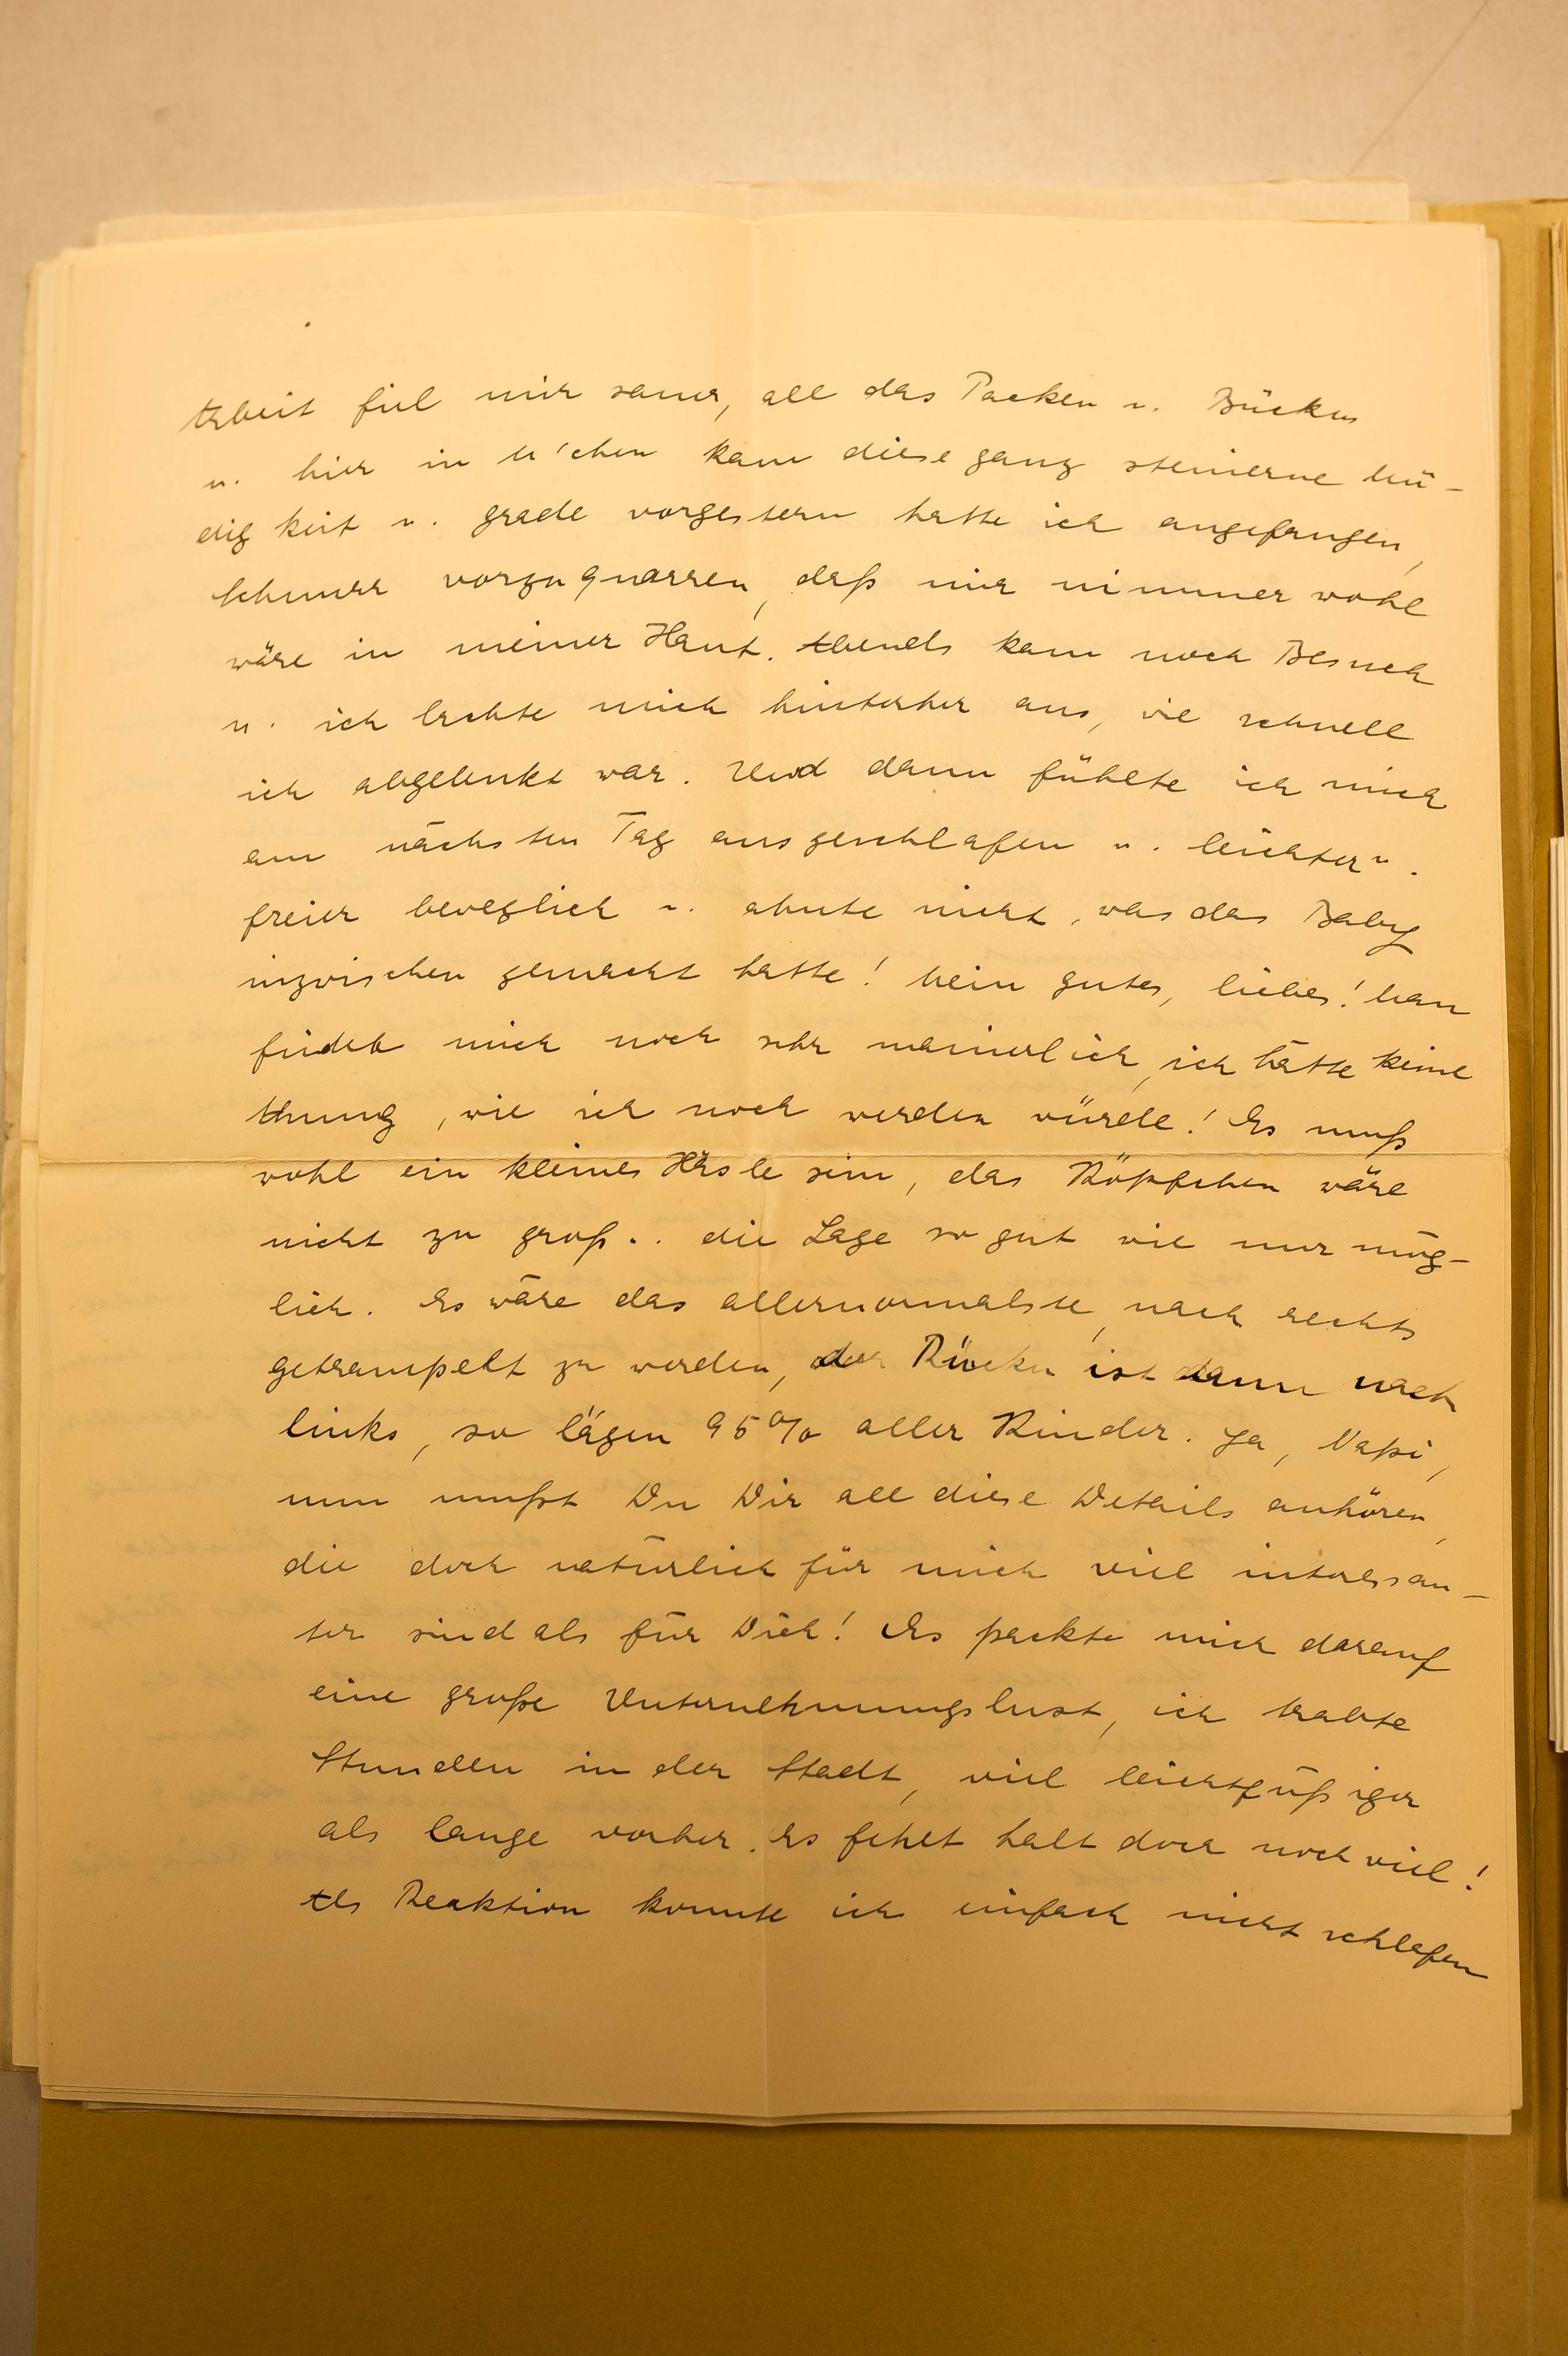 Arbeit fiel mir sauer, all das Packen u. Bücken
u. hier in M'chen kam diese ganz steinerne Mü-
digkeit u. grade vorgestern hatte ich angefangen,
Schnurr vorzuquarren, daß mir nimmer wohl
wäre in meiner Haut. Abends kam noch Besuch
u. ich lachte mich hinterher aus, wie schnell
ich abgelenkt war. Und dann fühlte ich mich
am nächsten Tag ausgeschlafen u. leichter u.
freier beweglich u. ahnte nicht, was das Baby
inzwischen gemacht hatte! Mein gutes, liebes! Man
findet mich noch sehr manierlich, ich hätte keine
Ahnung, wie ich noch werden würde! Es muß
wohl ein kleines Häsle sein, das Köpfchen wäre
nicht zu groß.. die Lage so gut wie nur mög-
lich. Es wäre das allernormalste, nach rechts
getrampelt zu werden, der Rücken ist dann nach
links, so lägen 95% aller Kinder. Ja, Papi,
nun mußt Du Dir all diese Details anhören,
die doch natürlich für mich viel interessan-
ter sind als für Dich! Es packte mich darauf
eine große Unternehmungslust, ich trabte
Stunden in der Stadt, viel leichtfüßiger
als lange vorher. Es fehlt halt doch noch viel!
Als Reaktion konnte ich einfach nicht schlafen